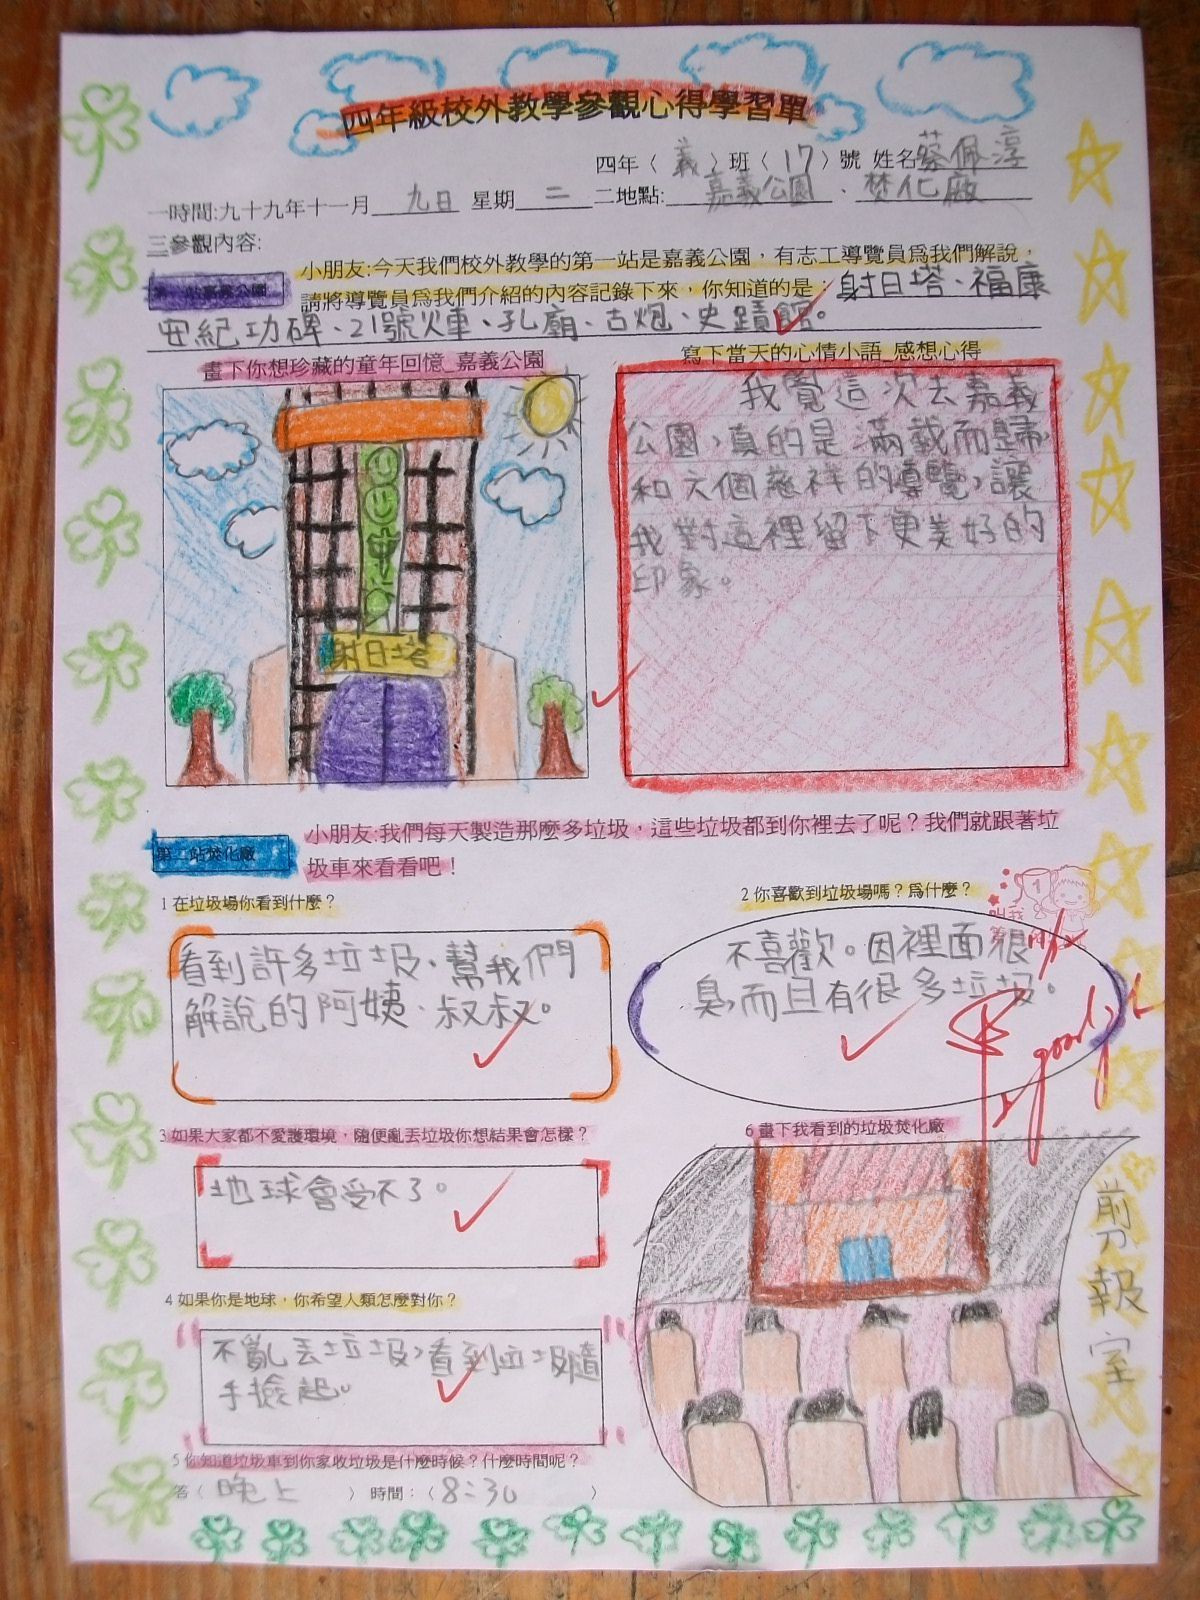 四年級校外教學參觀心得學習單
四年〈 義 〉班〈 17 〉號 姓名蔡佩淳
一時間:九十九年十一月 九日 星期 二 二地點: 嘉義公園 、焚化廠
三參觀內容:
第一站嘉義公園
小朋友:今天我們校外教學的第一站是嘉義公園，有志工導覽員為我們解說，
請將導覽員為我們介紹的內容記錄下來，你知道的是：射日塔、福康
安紀功碑、21號火車、孔廟、古炮、史蹟館。
畫下你想珍藏的童年回憶_嘉義公園
射日塔
寫下當天的心情小語_感想心得
我覺這次去嘉義
公園，真的是滿載而歸，
和六個慈祥的導覽，讓
我對這裡留下更美好的
印象。
第二站焚化廠
小朋友:我們每天製造那麼多垃圾，這些垃圾都到你裡去了呢？我們就跟著垃
圾車來看看吧！
1 在垃圾場你看到什麼？
看到許多垃圾、幫我們
解說的阿姨、叔叔。
2 你喜歡到垃圾場嗎？為什麼？
不喜歡。因裡面很
臭，而且有很多垃圾。
good
3 如果大家都不愛護環境，隨便亂丟垃圾你想結果會怎樣？
地球會受不了。
4 如果你是地球，你希望人類怎麼對你？
不亂丟垃圾，看到垃圾隨
手撿起。
5 你知道垃圾車到你家收垃圾是什麼時候？什麼時間呢？
答〈 晚上 〉 時間：〈 8：30 〉
6 畫下我看到的垃圾焚化廠
剪報室